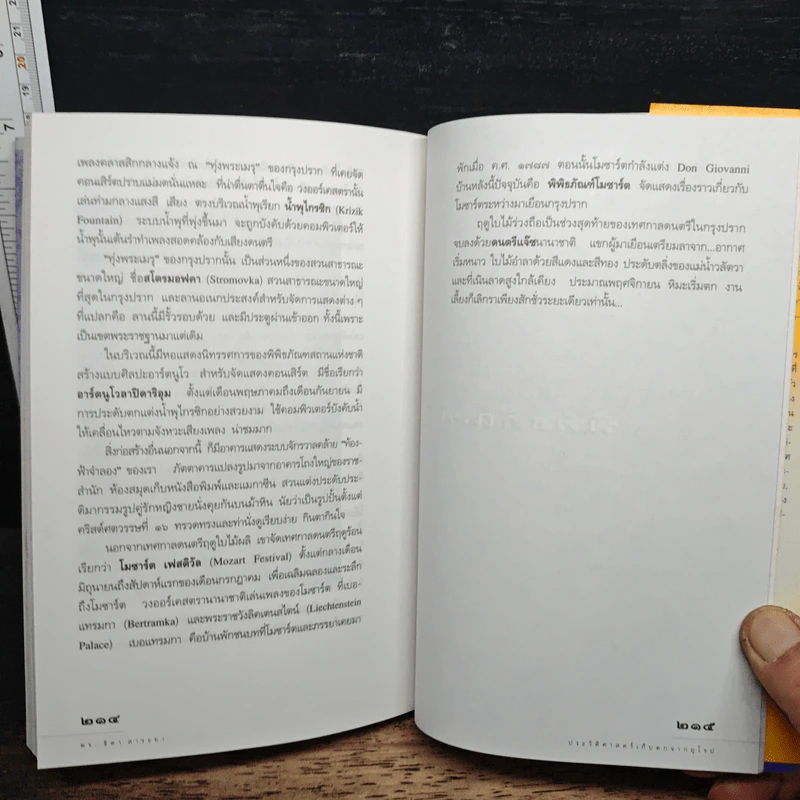 เพลงคลาสสิกกลางแจ้ง ณ “ทุ่งพระเมรุ” ของกรุงปราก ที่เคยจัด
คอนเสิร์ตปราบแม่มดนั่นแหละ ที่น่าตื่นตาตื่นใจคือ วงออร์เคสตรานั้น
เล่นท่ามกลางแสงสี เสียง ตรงบริเวณน้ำพุเรียก น้ำพุไกรซิก (Krizik
Fountain) ระบบน้ำพุที่พุ่งขึ้นมา จะถูกบังคับด้วยคอมพิวเตอร์ให้
น้ำพุนั้นเต้นรำทำเพลงสอดคล้องกับเสียงดนตรี
“ทุ่งพระเมรุ” ของกรุงปรากนั้น เป็นส่วนหนึ่งของสวนสาธารณะ
ขนาดใหญ่ ชื่อสโตรมอฟคา (Stromovka) สวนสาธารณะขนาดใหญ่
ที่สุดในกรุงปราก และลานอเนกประสงค์สำหรับจัดการแสดงต่าง ๆ
ที่แปลกคือ ลานนี้มีรั้วรอบด้วย และมีประตูผ่านเข้าออก ทั้งนี้เพราะ
เป็นเขตพระราชฐานมาแต่เดิม
ในบริเวณนี้มีหอแสดงนิทรรศการของพิพิธภัณฑสถานแห่งชาติ
สร้างแบบศิลปะอาร์ตนูโว สำหรับจัดแสดงคอนเสิร์ต มีชื่อเรียกว่า
อาร์ตนูโวลาปิดาริอุม ตั้งแต่เดือนพฤษภาคมถึงเดือนกันยายน มี
การประดับตกแต่งน้ำพุไกรซิกอย่างสวยงาม ใช้คอมพิวเตอร์บังคับน้ำ
ให้เคลื่อนไหวตามจังหวะเสียงเพลง น่าชมมาก
สิ่งก่อสร้างอื่นนอกจากนี้ ก็มีอาคารแสดงระบบจักรวาลคล้าย “ท้อง-
ฟ้าจำลอง” ของเรา ภัตตาคารแปลงรูปมาจากอาคารโถงใหญ่ของราช-
สำนัก ห้องสมุดเก็บหนังสือพิมพ์และแมกาซีน สวนแต่งประดับประ-
ติมากรรมรูปคู่รักหญิงชายนั่งคุยกันบนม้าหิน นัยว่าเป็นรูปปั้นตั้งแต่
คริสต์ศตวรรษที่ ๑๖ ทรวดทรงและท่านั่งดูเรียบง่าย กินตากินใจ
นอกจากเทศกาลดนตรีฤดูใบไม้ผลิ เขาจัดเทศกาลดนตรีฤดูร้อน
เรียกว่า โมซาร์ต เฟสติวัล (Mozart Festival) ตั้งแต่กลางเดือน
มิถุนายนถึงสัปดาห์แรกของเดือนกรกฎาคม เพื่อเฉลิมฉลองและระลึก
ถึงโมซาร์ต วงออร์เคสตรานานาชาติเล่นเพลงของโมซาร์ต ที่เบอ-
แทรมกา (Bertramka) และพระราชวังลิคเตนสไตน์ (Liechtenstein
Palace) เบอแทรมกา คือบ้านพักชนบทที่โมซาร์ตและภรรยาเคยมา
๒๑๔
ดร. ธิดา สาระยา
พักเมื่อ ค.ศ. ๑๗๘๗ ตอนนั้นโมซาร์ตกำลังแต่ง Don Giovanni
บ้านหลังนี้ปัจจุบันคือ พิพิธภัณฑ์โมซาร์ต จัดแสดงเรื่องราวเกี่ยวกับ
โมซาร์ตระหว่างมาเยือนกรุงปราก
ฤดูใบไม้ร่วงถือเป็นช่วงสุดท้ายของเทศกาลดนตรีในกรุงปราก
จบลงด้วยดนตรีแจ๊ซนานาชาติ แขกผู้มาเยือนเตรียมลาจาก...อากาศ
เริ่มหนาว ใบไม้อำลาด้วยสีแดงและสีทอง ประดับตลิ่งของแม่น้ำวลัตวา
และที่เนินลาดสูงใกล้เคียง ประมาณพฤศจิกายน หิมะเริ่มตก งาน
เลี้ยงก็เลิกราเพียงสักชั่วระยะเดียวเท่านั้น...
๒๑๕
ประวัติศาสตร์เก็บตกจากยุโรป